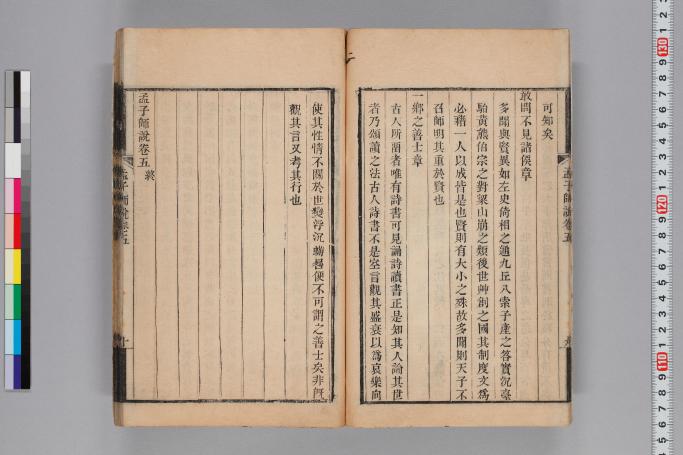 可知矣
敢問不見諸侯章
多聞與賢異如左史倚相之通九丘八索子產之答實沉臺
駘黃熊伯宗之對梁山崩之類後世艸創之國其制度文爲
必藉一人以成皆是也賢則有大小之殊故多聞則天子不
召師明其重於賢也
一鄉之善士章
古人所留者唯有詩書可見誦詩讀書正是知其人論其世
者乃頌讀之法古人詩書不是空言觀其盛衰以爲哀樂向
使其性情不關於世變浮沉蹈襲便不可謂之善士矣非旣
觀其言又考其行也
孟子師說卷五終
孟子師說卷五
九
孟子師說卷五
十